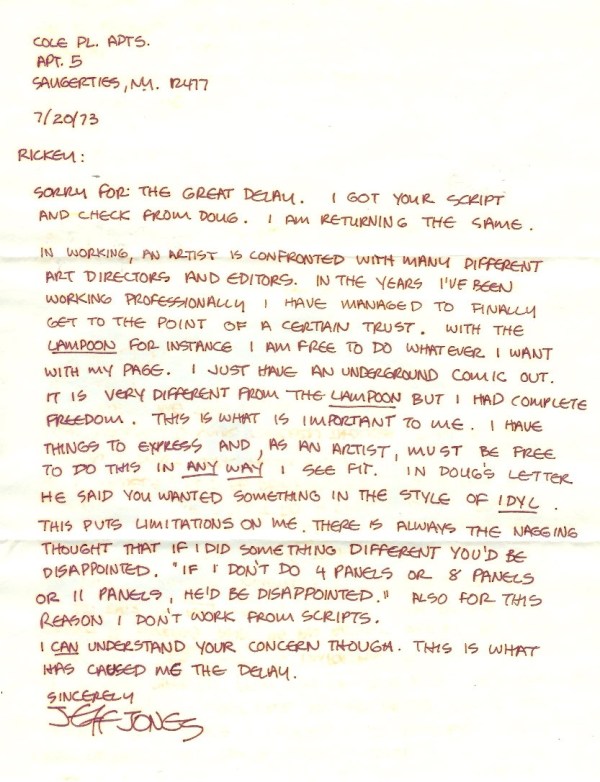 COLE PL. APTS.
APT. 5
SAUGERTIES, N.Y. 12477
7/20/73
RICKEY:
SORRY FOR THE GREAT DELAY. I GOT YOUR SCRIPT
AND CHECK FROM DOUG. I AM RETURNING THE SAME.
IN WORKING, AN ARTIST IS CONFRONTED WITH MANY DIFFERENT
ART DIRECTORS AND EDITORS. IN THE YEARS I'VE BEEN
WORKING PROFESSIONALLY I HAVE MANAGED TO FINALLY
GET TO THE POINT OF A CERTAIN TRUST. WITH THE
LAMPOON FOR INSTANCE I AM FREE TO DO WHATEVER I WANT
WITH MY PAGE. I JUST HAVE AN UNDERGROUND COMIC OUT.
IT IS VERY DIFFERENT FROM THE LAMPOON BUT I HAD COMPLETE
FREEDOM. THIS IS WHAT IS IMPORTANT TO ME. I HAVE
THINGS TO EXPRESS AND, AS AN ARTIST, MUST BE FREE
TO DO THIS IN ANY WAY I SEE FIT. IN DOUG'S LETTER
HE SAID YOU WANTED SOMETHING IN THE STYLE OF IDYL.
THIS PUTS LIMITATIONS ON ME. THERE IS ALWAYS THE NAGGING
THOUGHT THAT IF I DID SOMETHING DIFFERENT YOU'D BE
DISAPPOINTED. "IF I DON'T DO 4 PANELS OR 8 PANELS
OR 11 PANELS, HE'D BE DISAPPOINTED." ALSO FOR THIS
REASON I DON'T WORK FROM SCRIPTS.
I CAN UNDERSTAND YOUR CONCERN THOUGH. THIS IS WHAT
HAS CAUSED ME THE DELAY.
SINCERELY
JEFF JONES